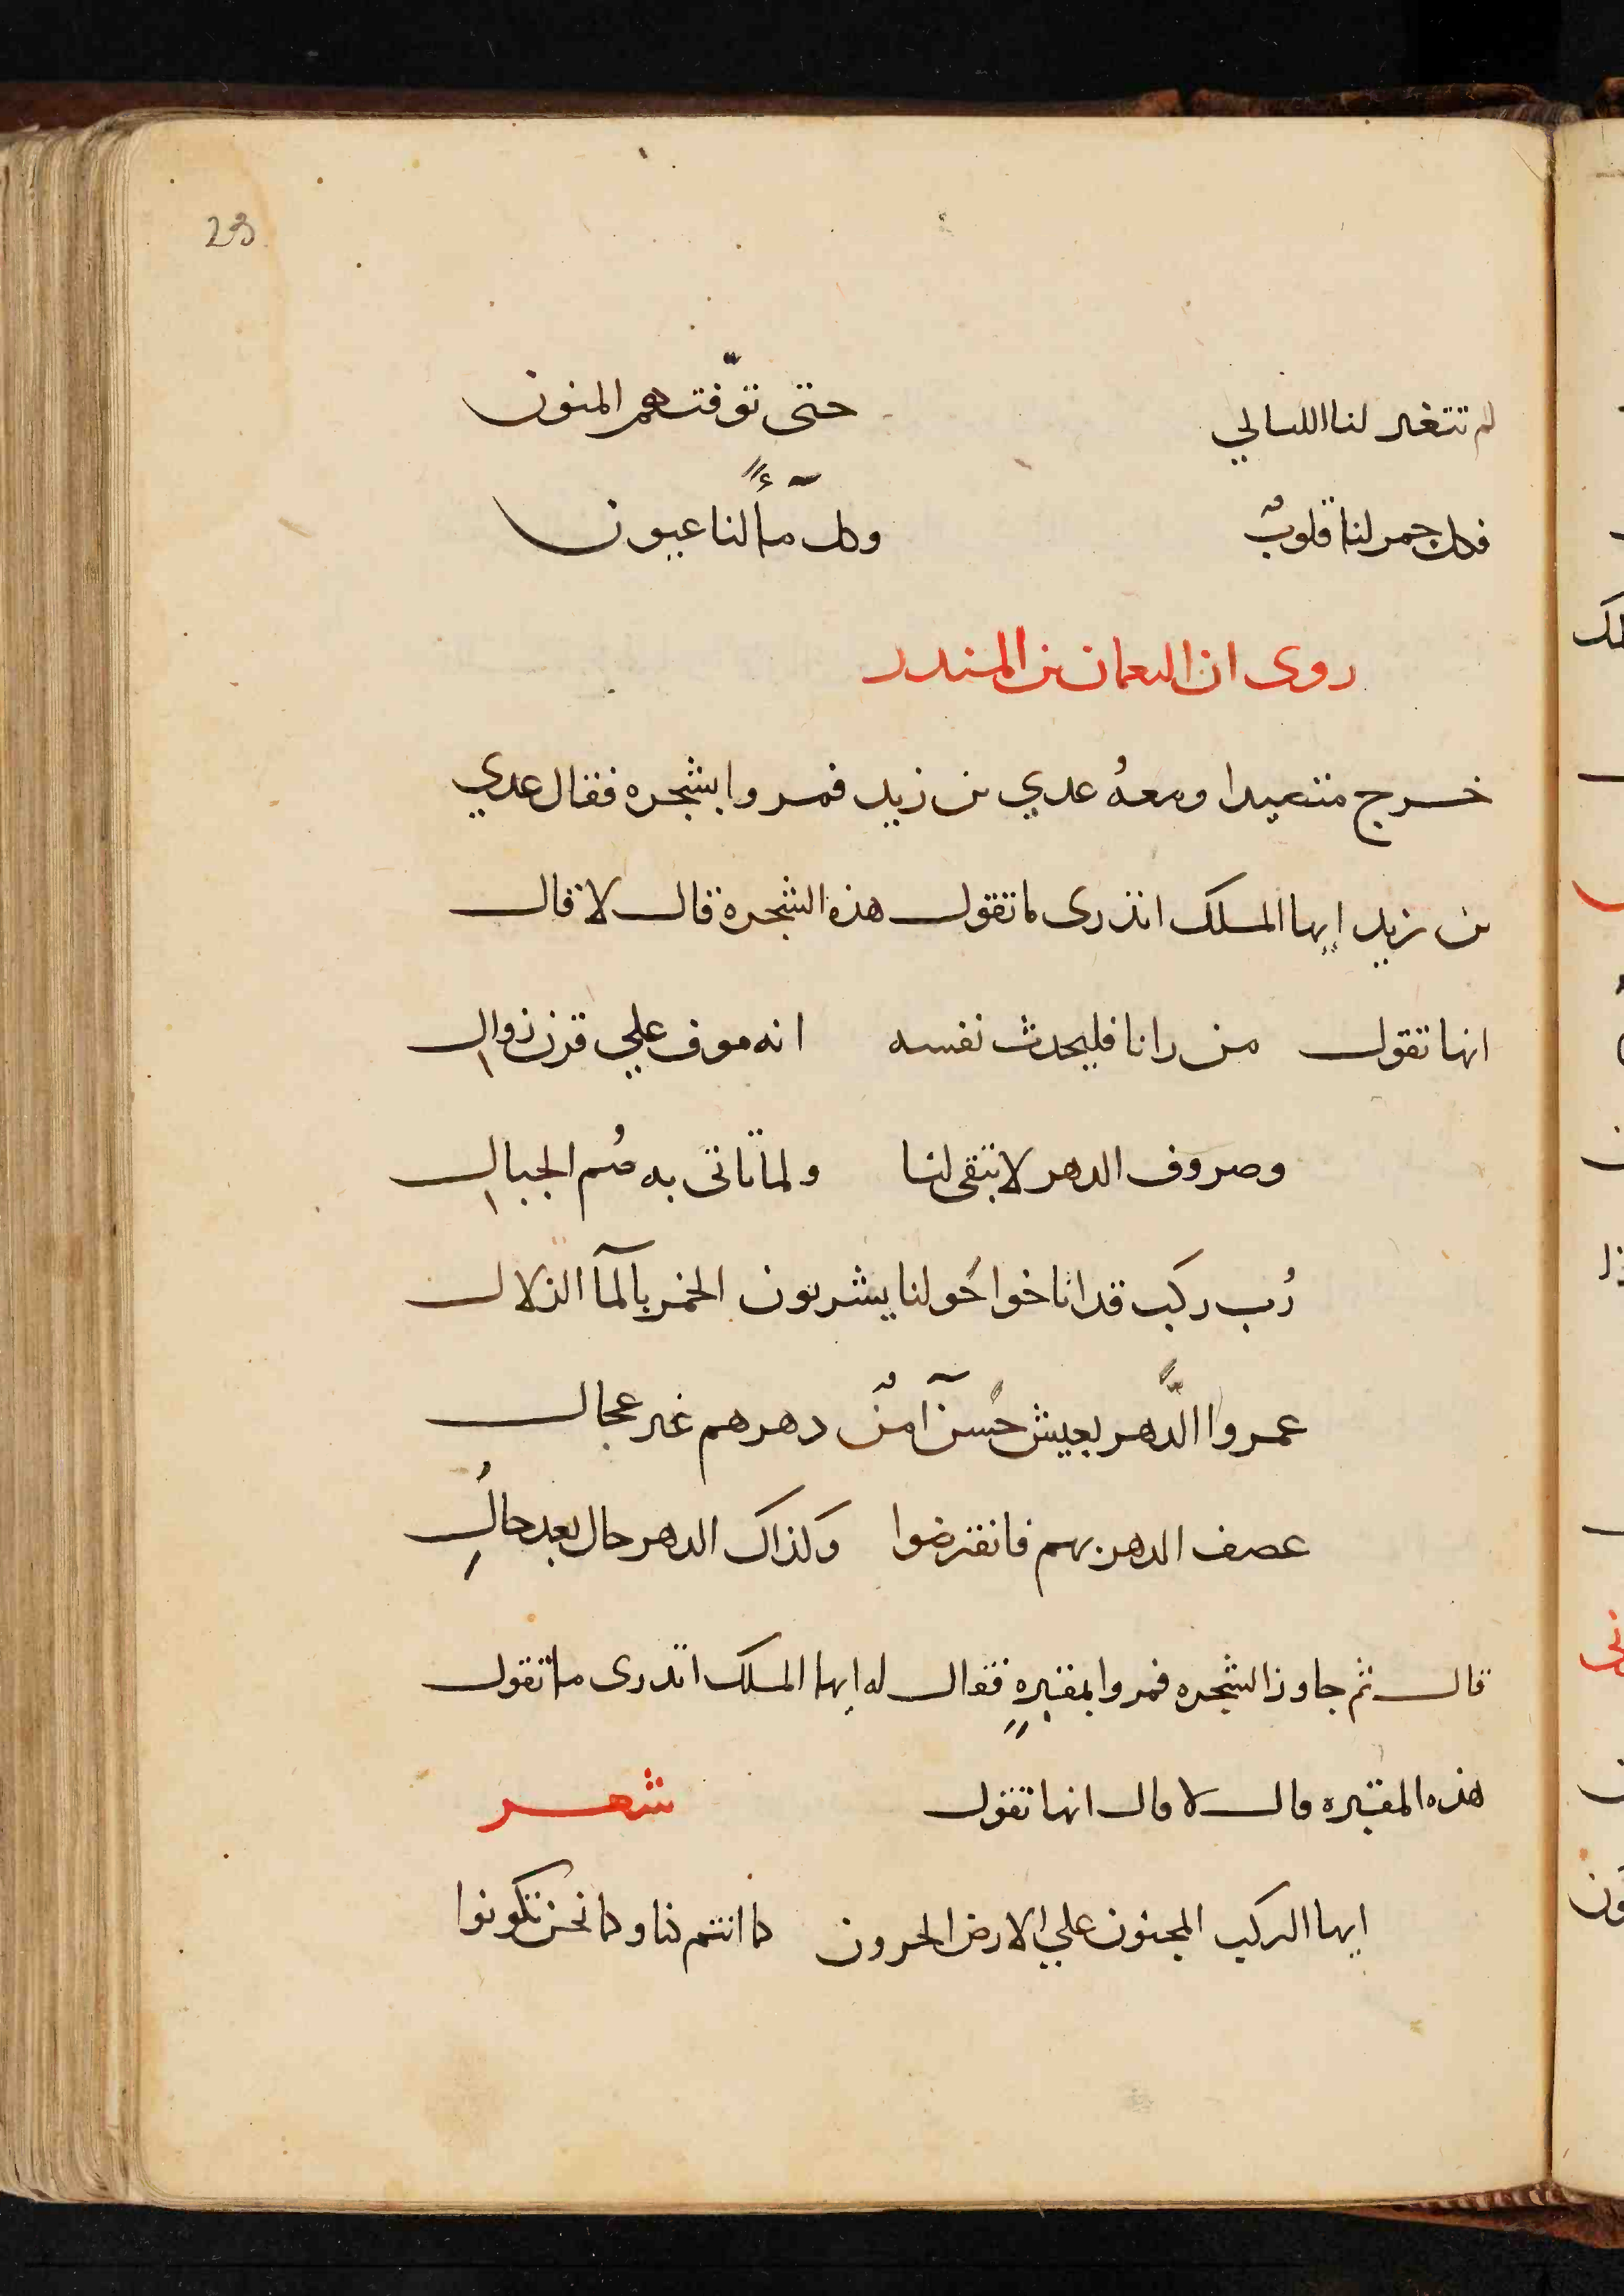 23
لم تتغير لنا الليالي حتى توّفتهم المنون
فكل جمر لنا قلوبٌ وكل مآءً لنا عيون
روى ان النعمان بن المندر
خرج متصيدا ومعهُ عدي بن زيد فمروا بشجره فقال عدي
بن زيد ايها الملك اتدرى ما تقول هذه الشجرة قال لا قال
انها تقول من رانا فليحدث نفسه انه موف علي قرن زوال
وصروف الدهر لا تبقى لنا ولما تاتى به صُم الجبال
رُب ركب قد اناخوا حَولنا يشربون الخمر بالمآ الزلال
عمروا الدَّهر بعيش حَسن آمنٌ دهرهم غير عجال
عصف الدهر بهم فانقرضوا وكذاك الدهر حال بعد حالُ
قال ثم جاوز الشجره فمروا بمقبرهٍ فقال له ايها الملك اتدرى ما تقول
هذه المقبره قال لا قال انها تقول شعر
ايها الركب المجنون علي الارض الحرون كما انتم كنا وكما نحن تكونوا